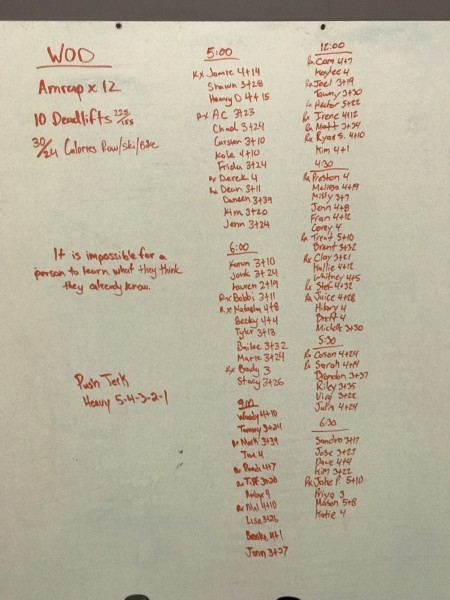 WOD
Amrap x 12
10 Deadlifts 225/155
30/24 Calories Row/Ski/Bike
It is impossible for a
person to learn what they think
they already know.
Push Jerk
Heavy 5-4-3-2-1
5:00
Rx Jamie 4+14
Shawn 3+28
Henry D 4+15
Rx AC 3+23
Chad 3+24
Carsten 3+10
Kole 4+10
Frida 3+24
Rx Derek 4
Rx Dean 3+11
Daneen 3+39
Kim 3+20
Jenn 3+24
6:00
Kevin 3+10
Jank 3+24
Lauren 2+19
Rx Bobbi 3+11
Rx Natasha 4+8
Becky 4+4
Tyler 3+13
Bailee 3+32
Marie 3+24
Rx Brady 3
Stacy 3+26
9:00
Woody 4+10
Tammy 3+24
Rx Mark 3+39
Joe 4
Rx 4+7
Rx Tiff 3+20
4
Rx 4+10
Lisa 3+26
4+1
Jenn 3+27
12:00
Rx Cam 4+7
Kaylee 4
Rx Joel 3+19
Tawny 3+30
Rx Hector 5+22
Rx Irene 4+12
Rx Matt 3+34
Rx Ryan S. 4+10
Kim 4+1
4:30
Rx Preston 4
Melissa 4+19
Missy 3+7
Jenn 4+8
Fran 4+12
Corey 4
Rx Trent 5+10
Brent 3+32
Rx Clay 3+21
Hallie 4+12
Whitney 4+5
Rx Stef 4+32
Rx Juice 4+28
Hilary 4
Brett 4
Michelle 3+30
5:30
Rx Carson 4+24
Rx Sarah 4+14
Brandon 3+37
Riley 3+35
Virgi 3+22
Julia 4+24
6:30
Sandro 3+17
Jose 3+27
Dave 4+4
Kim 3+22
Rx Jake P. 5+10
Priya 3
Mason 5+8
Katie 4